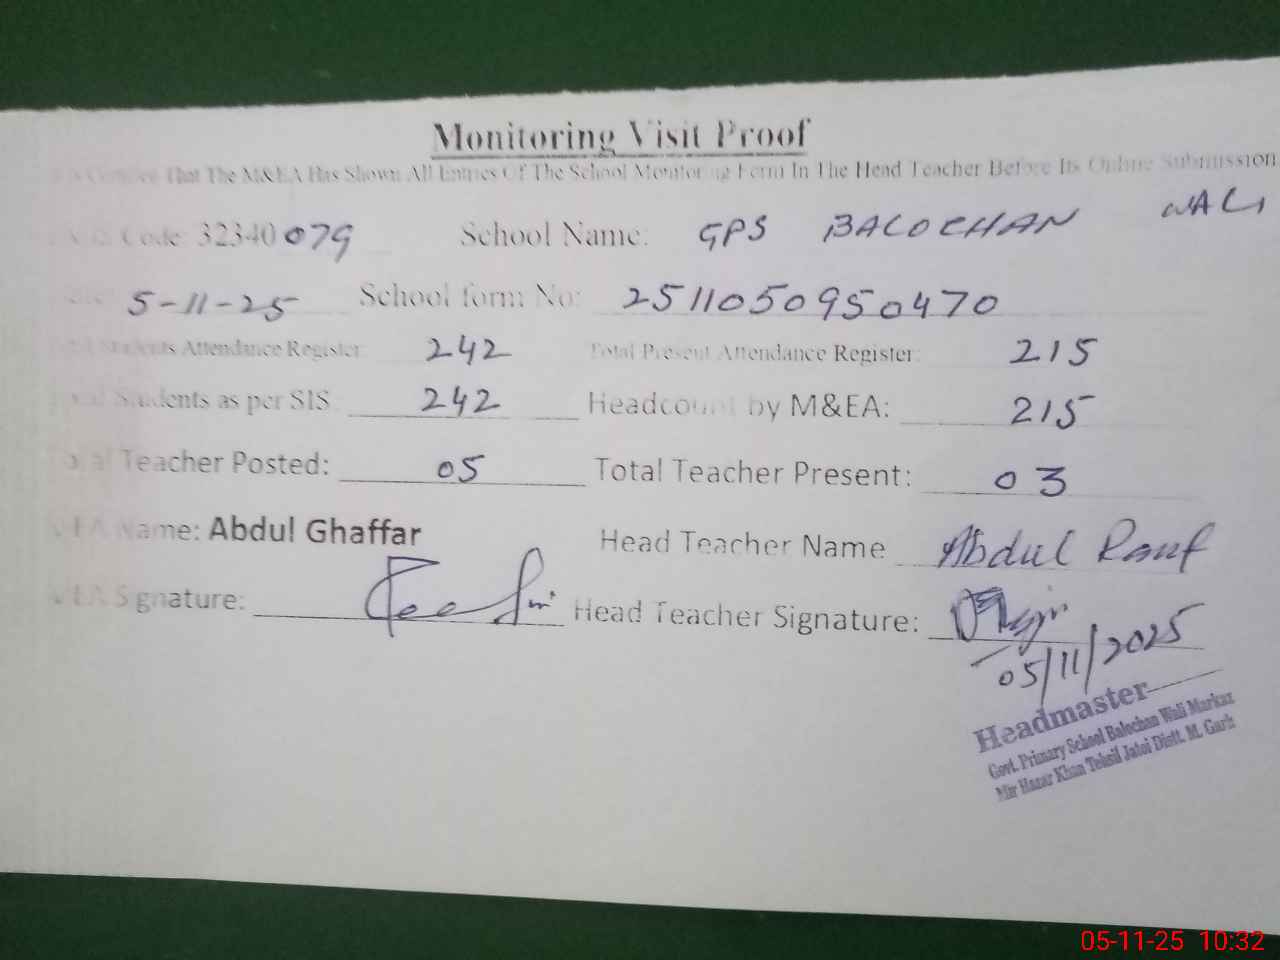 Monitoring Visit Proof
That The M&EA Has Shown All Entries Of The School Monitoring Form In The Head Teacher Before Its Online Submission
Code: 32340079 School Name: GPS BALOCHAN WALI
5-11-25 School form No: 2511050950470
Students Attendance Register 242 Total Present Attendance Register: 215
Total Students as per SIS: 242 Headcount by M&EA: 215
Total Teacher Posted: 05 Total Teacher Present: 03
MEA Name: Abdul Ghaffar Head Teacher Name Abdul Rauf
MEA Signature: Head Teacher Signature:
05/11/2025
Headmaster
Govt. Primary School Balochan Wali Markaz
Mir Hazar Khan Tehsil Jatoi Distt. M. Garh
05-11-25 10:32